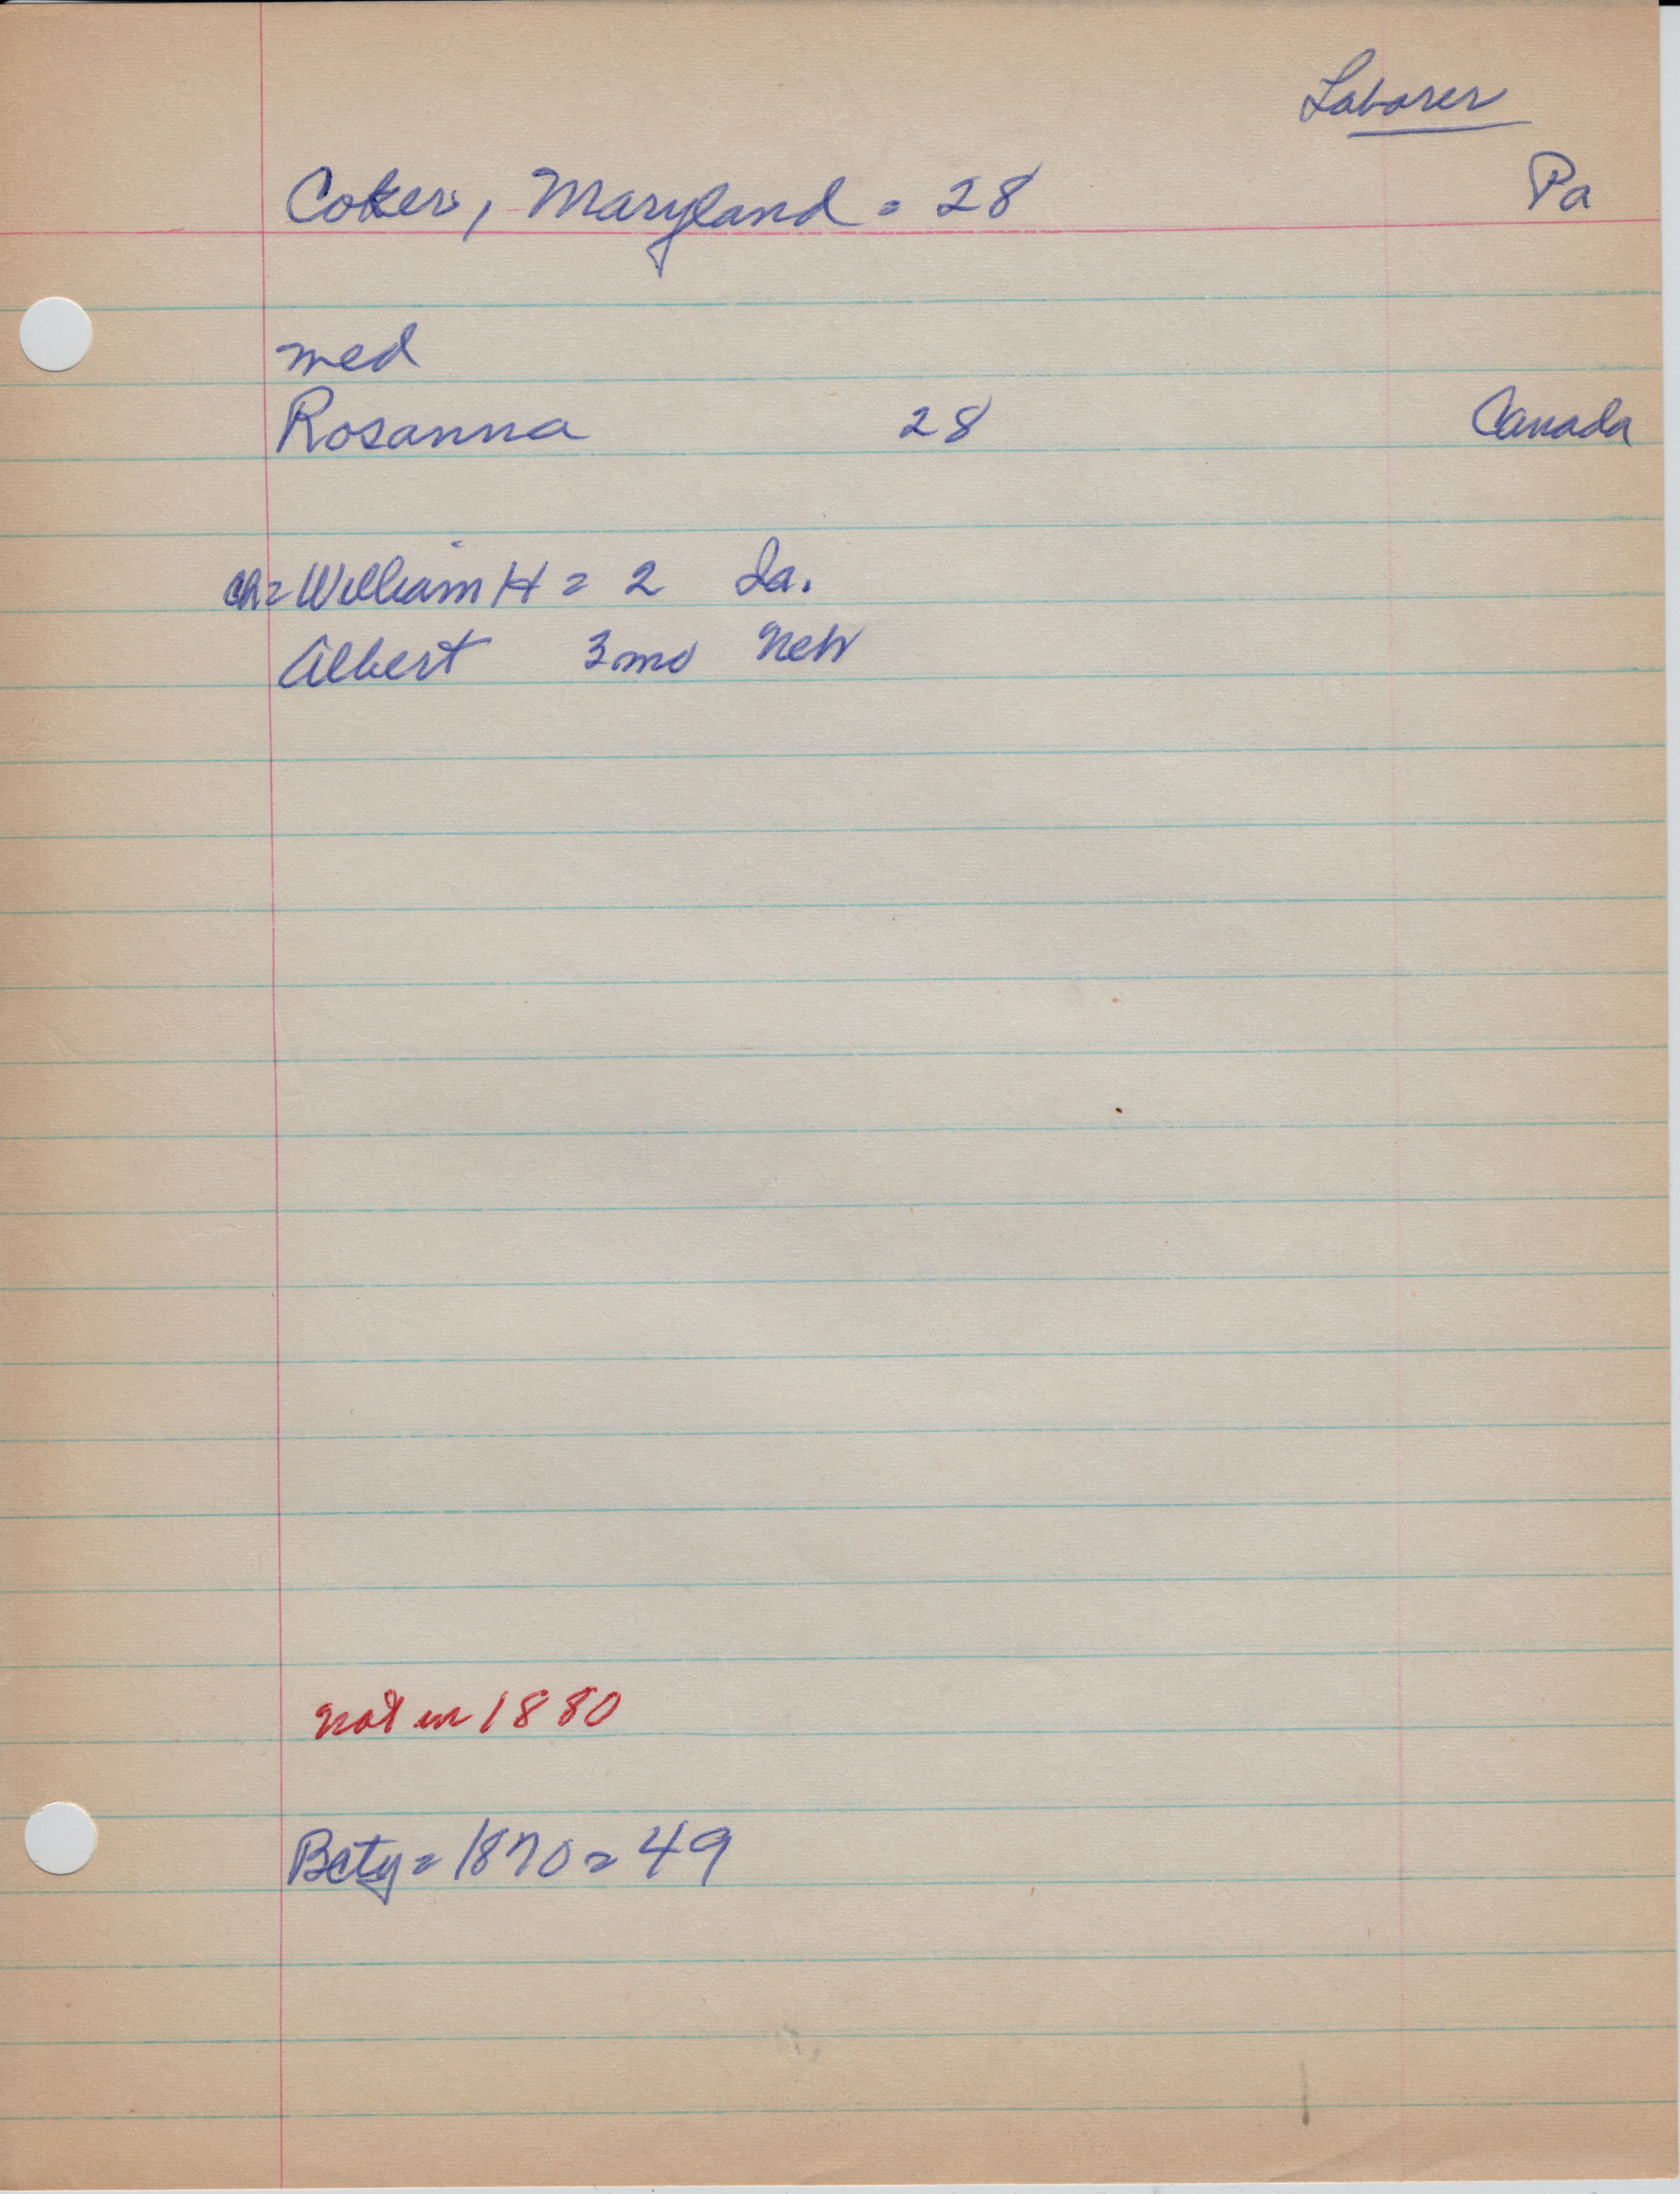 Laborer
Coker, Maryland = 28 Pa
med
Rosanna 28 Canada
ch = William H = 2 Ia.
Albert 3 mo Neb
not in 1880
Bcty = 1870 = 49